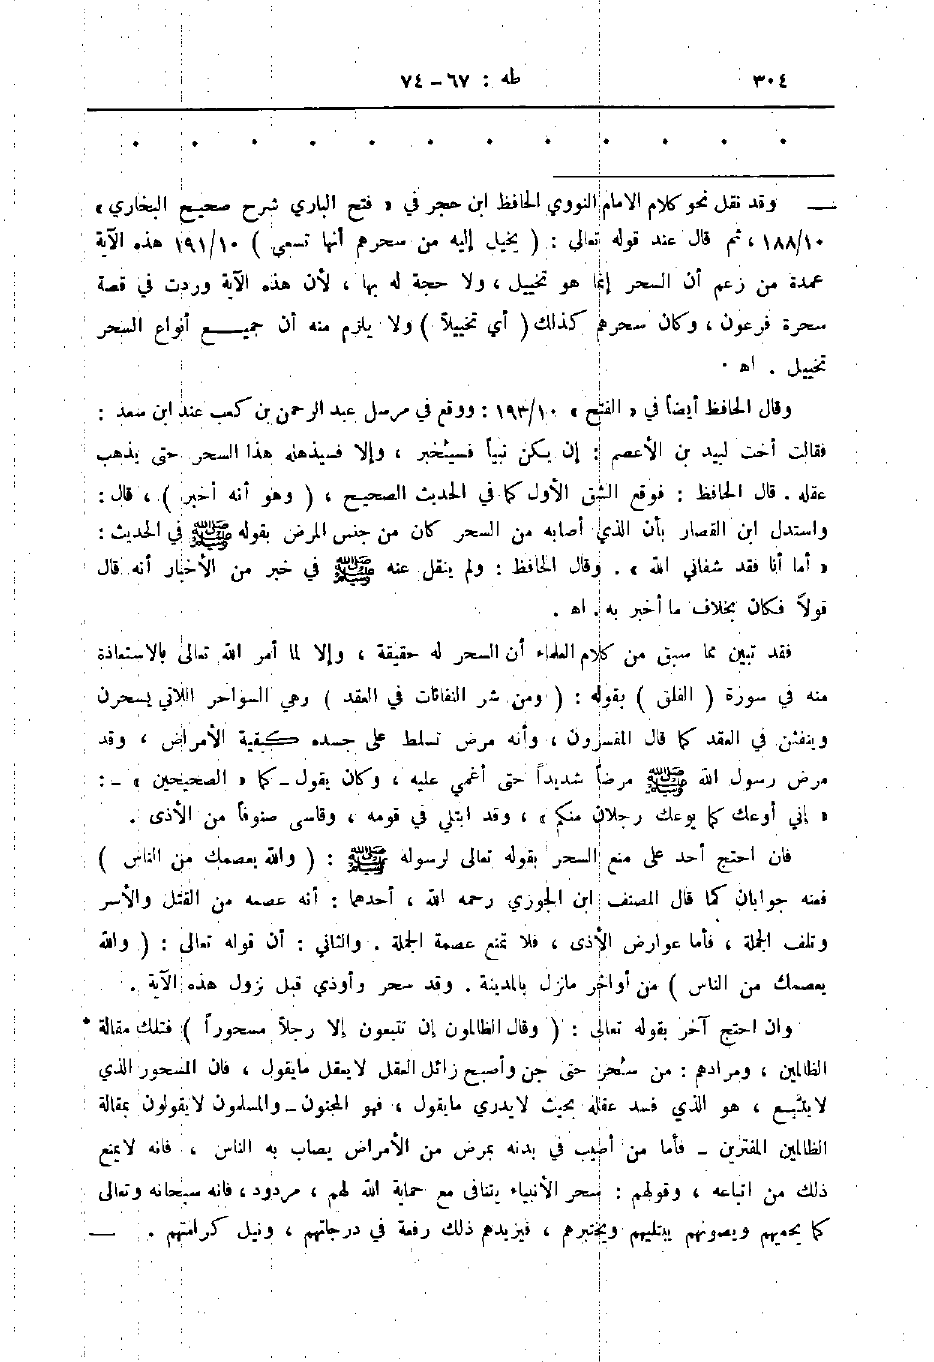 ٣٠٤
طه : ٦٧ - ٧٤
. . . . . . . . . . . .
ــ وقد نقل نحو كلام الامام النووي الحافظ ابن حجر في « فتح الباري شرح صحيح البخاري »
١٨٨/١٠ ، ثم قال عند قوله تعالى : ( يخيل إليه من سحرهم أنها تسعى ) ١٩١/١٠ هذه الآية
عمدة من زعم أن السحر إنما هو تخييل ، ولا حجة له بها ، لأن هذه الآية وردت في قصة
سحرة فرعون ، وكان سحرهم كذلك ( أي تخييلاً ) ولا يلزم منه أن جميـــع أنواع السحر
تخييل . اه .
وقال الحافظ أيضاً في « الفتح » ١٩٣/١٠ : ووقع في مرسل عبد الرحمن بن كعب عند ابن سعد :
فقالت أخت لبيد بن الأعصم : إن يكن نبياً فسيُخبر ، وإلا فسيذهله هذا السحر حتى يذهب
عقله . قال الحافظ : فوقع الشق الأول كما في الحديث الصحيح ، ( وهو أنه أخبر ) ، قال :
واستدل ابن القصار بأن الذي أصابه من السحر كان من جنس المرض بقوله ﷺ في الحديث :
« أما أنا فقد شفاني الله » . وقال الحافظ : ولم ينقل عنه ﷺ في خبر من الأخبار أنه قال
قولاً فكان بخلاف ما أخبر به . اه .
فقد تبين مما سبق من كلام العلماء أن السحر له حقيقة ، وإلا لما أمر الله تعالى بالاستعاذة
منه في سورة ( الفلق ) بقوله : ( ومن شر النفاثات في العقد ) وهي السواحر اللاتي يسحرن
وينفثن في العقد كما قال المفسرون ، وأنه مرض تسلط على جسده كبقية الأمراض ، وقد
مرض رسول الله ﷺ مرضاً شديداً حتى أغمي عليه ، وكان يقول ـ كما « الصحيحين » ـ :
« إني أوعك كما يوعك رجلان منكم » ، وقد ابتلي في قومه ، وقاسى صنوفاً من الأذى .
فان احتج أحد على منع السحر بقوله تعالى لرسوله ﷺ : ( والله يعصمك من الناس )
فعنه جوابان كما قال المصنف ابن الجوزي رحمه الله ، أحدهما : أنه عصمه من القتل والأسر
وتلف الجملة ، فأما عوارض الأذى ، فلا تمنع عصمة الجملة . والثاني : أن قوله تعالى : ( والله
يعصمك من الناس ) من أواخر مانزل بالمدينة . وقد سحر وأوذي قبل نزول هذه الآية .
وان احتج آخر بقوله تعالى : ( وقال الظالمون إن تتبعون إلا رجلاً مسحوراً ) فتلك مقالة
الظالمين ، ومرادهم : من سُحر حتى جن وأصبح زائل العقل لايعقل مايقول ، فان المسحور الذي
لايتَّبع ، هو الذي فسد عقله بحيث لايدري مايقول ، فهو المجنون ـ والمسلمون لايقولون بمقالة
الظالمين المفترين ـ فأما من أصيب في بدنه بمرض من الأمراض يصاب به الناس ، فانه لايمنع
ذلك من اتباعه ، وقولهم : سحر الأنبياء يتنافى مع حماية الله لهم ، مردود ، فانه سبحانه وتعالى
كما يحميهم ويصونهم يبتليهم ويختبرهم ، فيزيدهم ذلك رفعة في درجاتهم ، ونيل كرامتهم . ــ